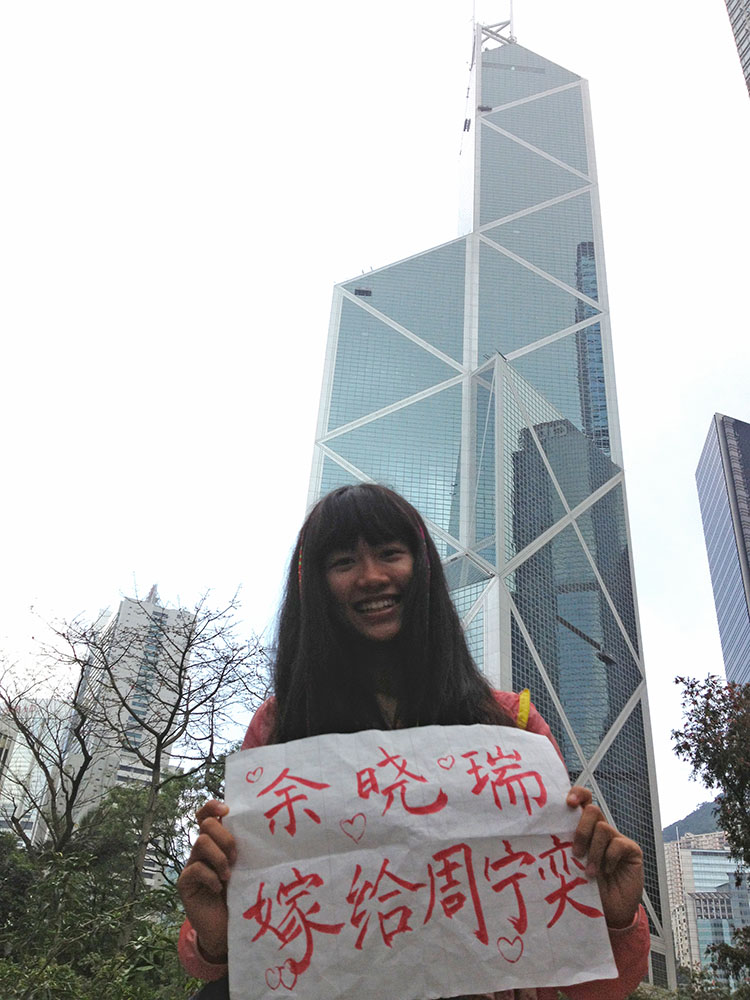 余晓瑞
嫁给周宁奕